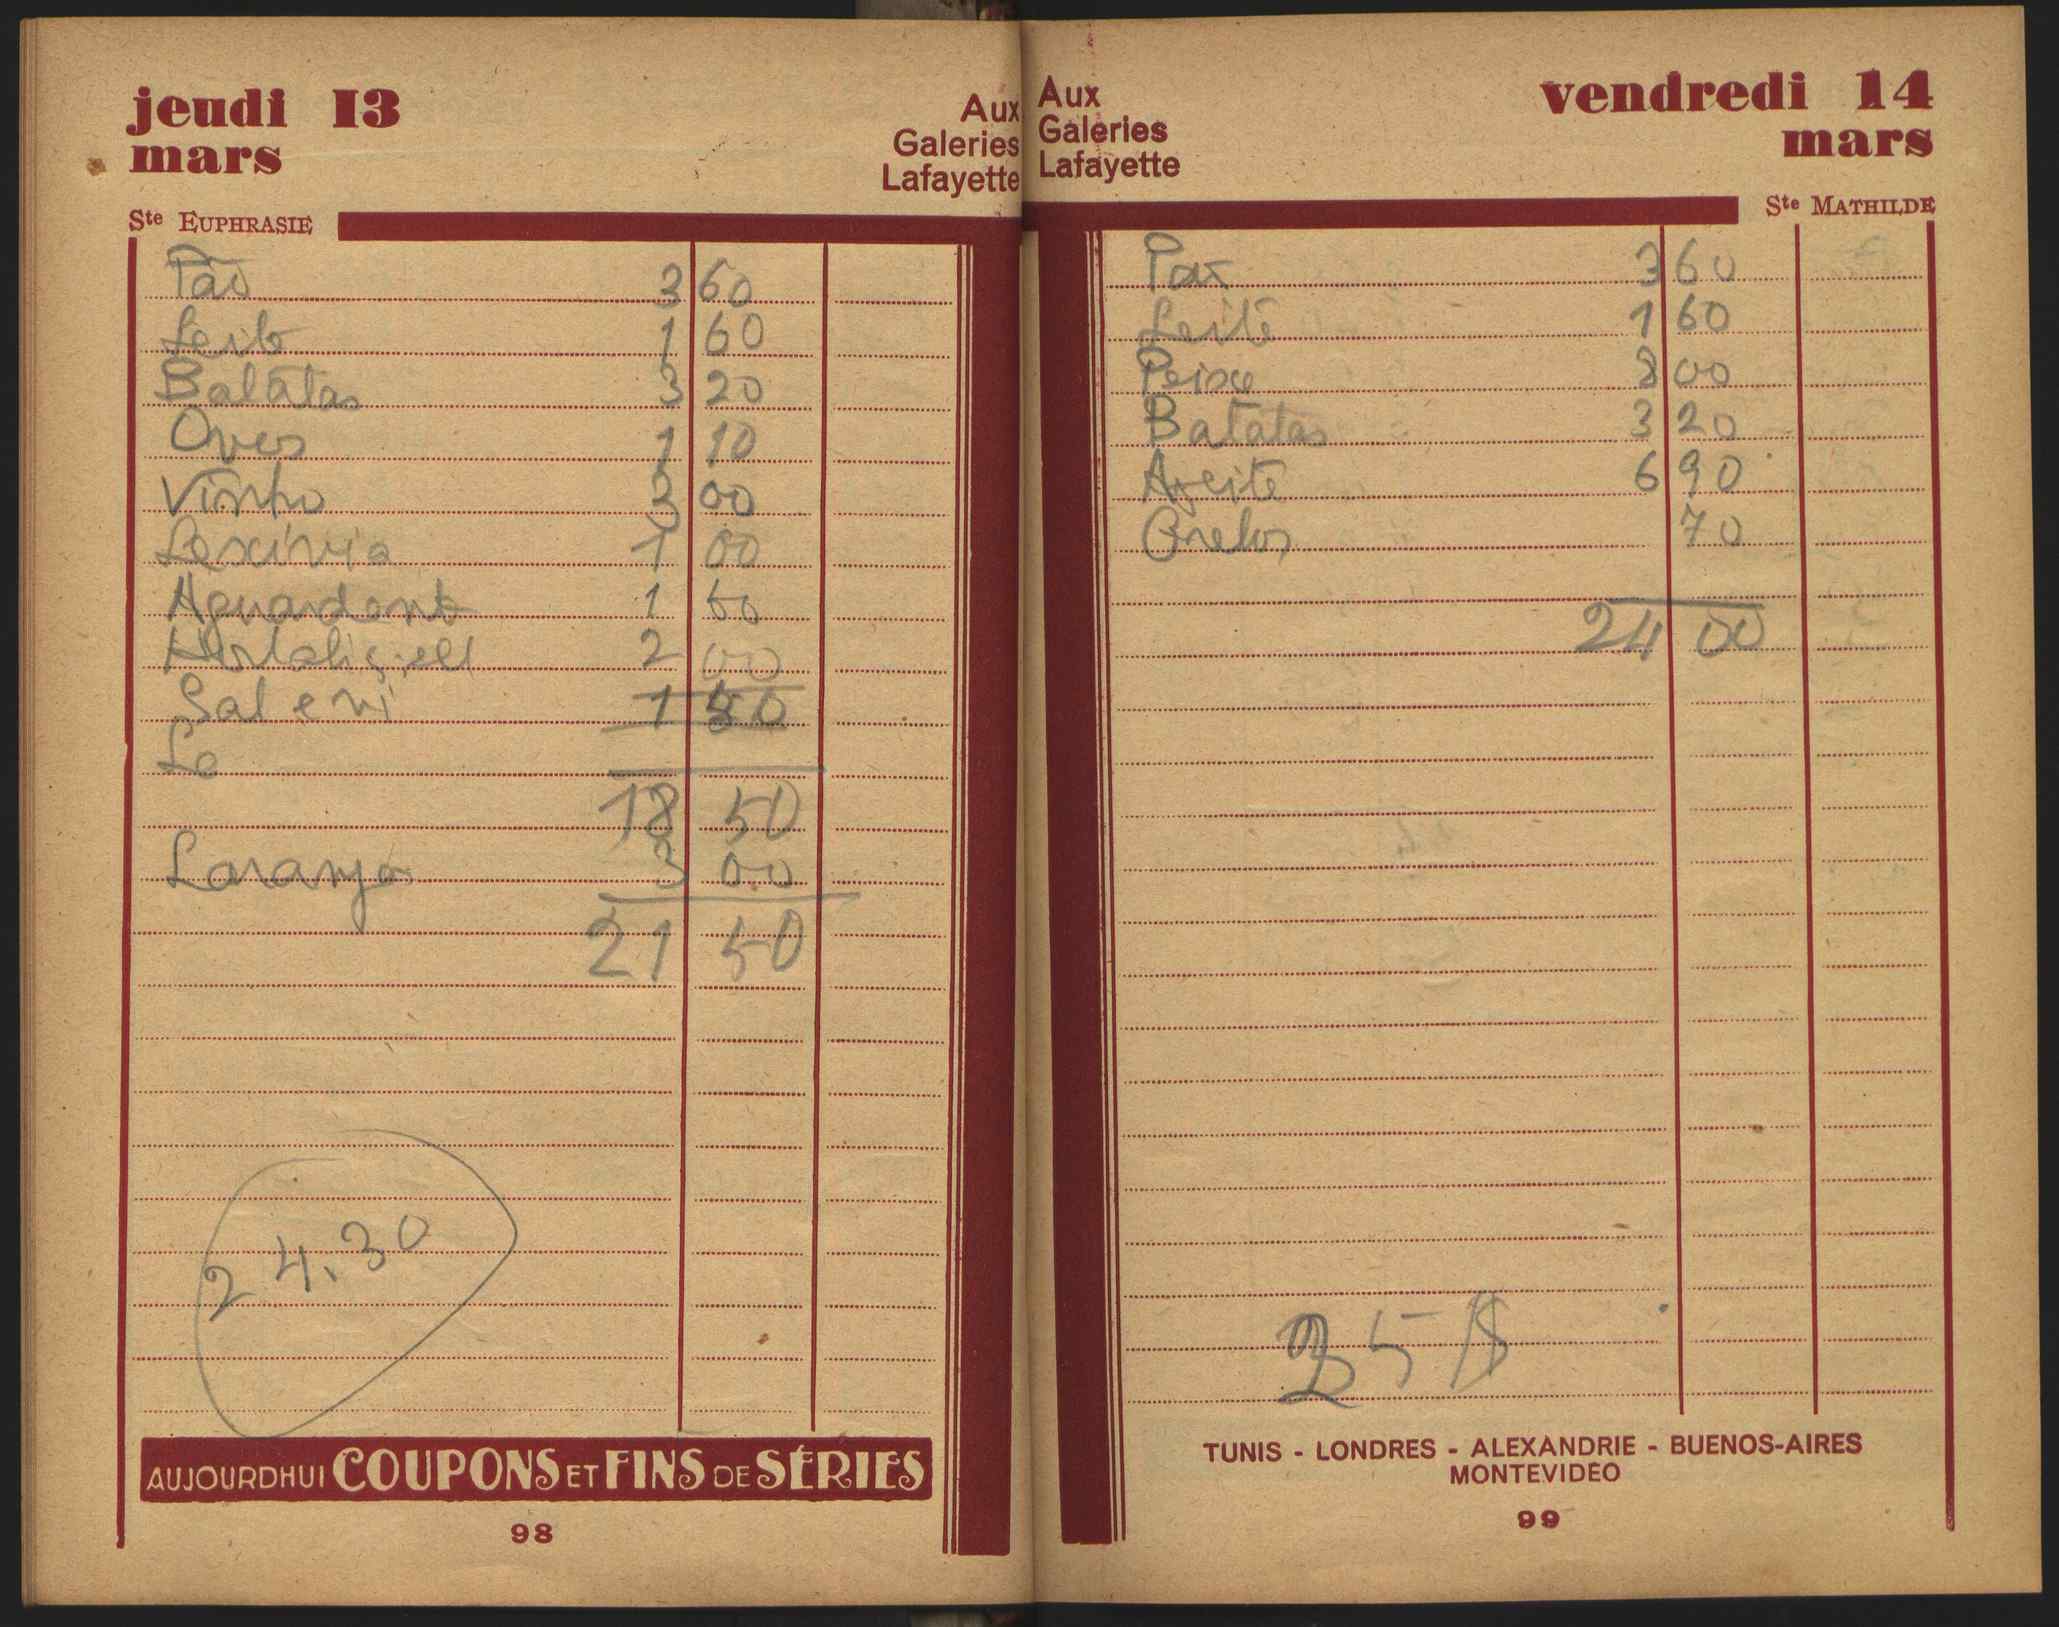 jeudi 13
mars
Aux
Galeries
Lafayette
Ste EUPHRASIE
Pão 3 60
Leite 1 60
Batatas 3 20
Oves 1 10
Vinho 3 00
Lexivia 1 00
Aguardente 1 50
Hortaliça 2 00
Sal e 1 50
Le
18 50
Laranja 3 00
21 50
24.30
AUJOURDHUI COUPONS ET FINS DE SÉRIES
98
Aux
Galeries
Lafayette
vendredi 14
mars
Ste MATHILDE
Pão 3 60
Leite 1 60
Peixe 8 00
Batatas 3 20
Azeite 6 90
Grelos 70
24 00
25 $
TUNIS - LONDRES - ALEXANDRIE - BUENOS-AIRES
MONTEVIDEO
99